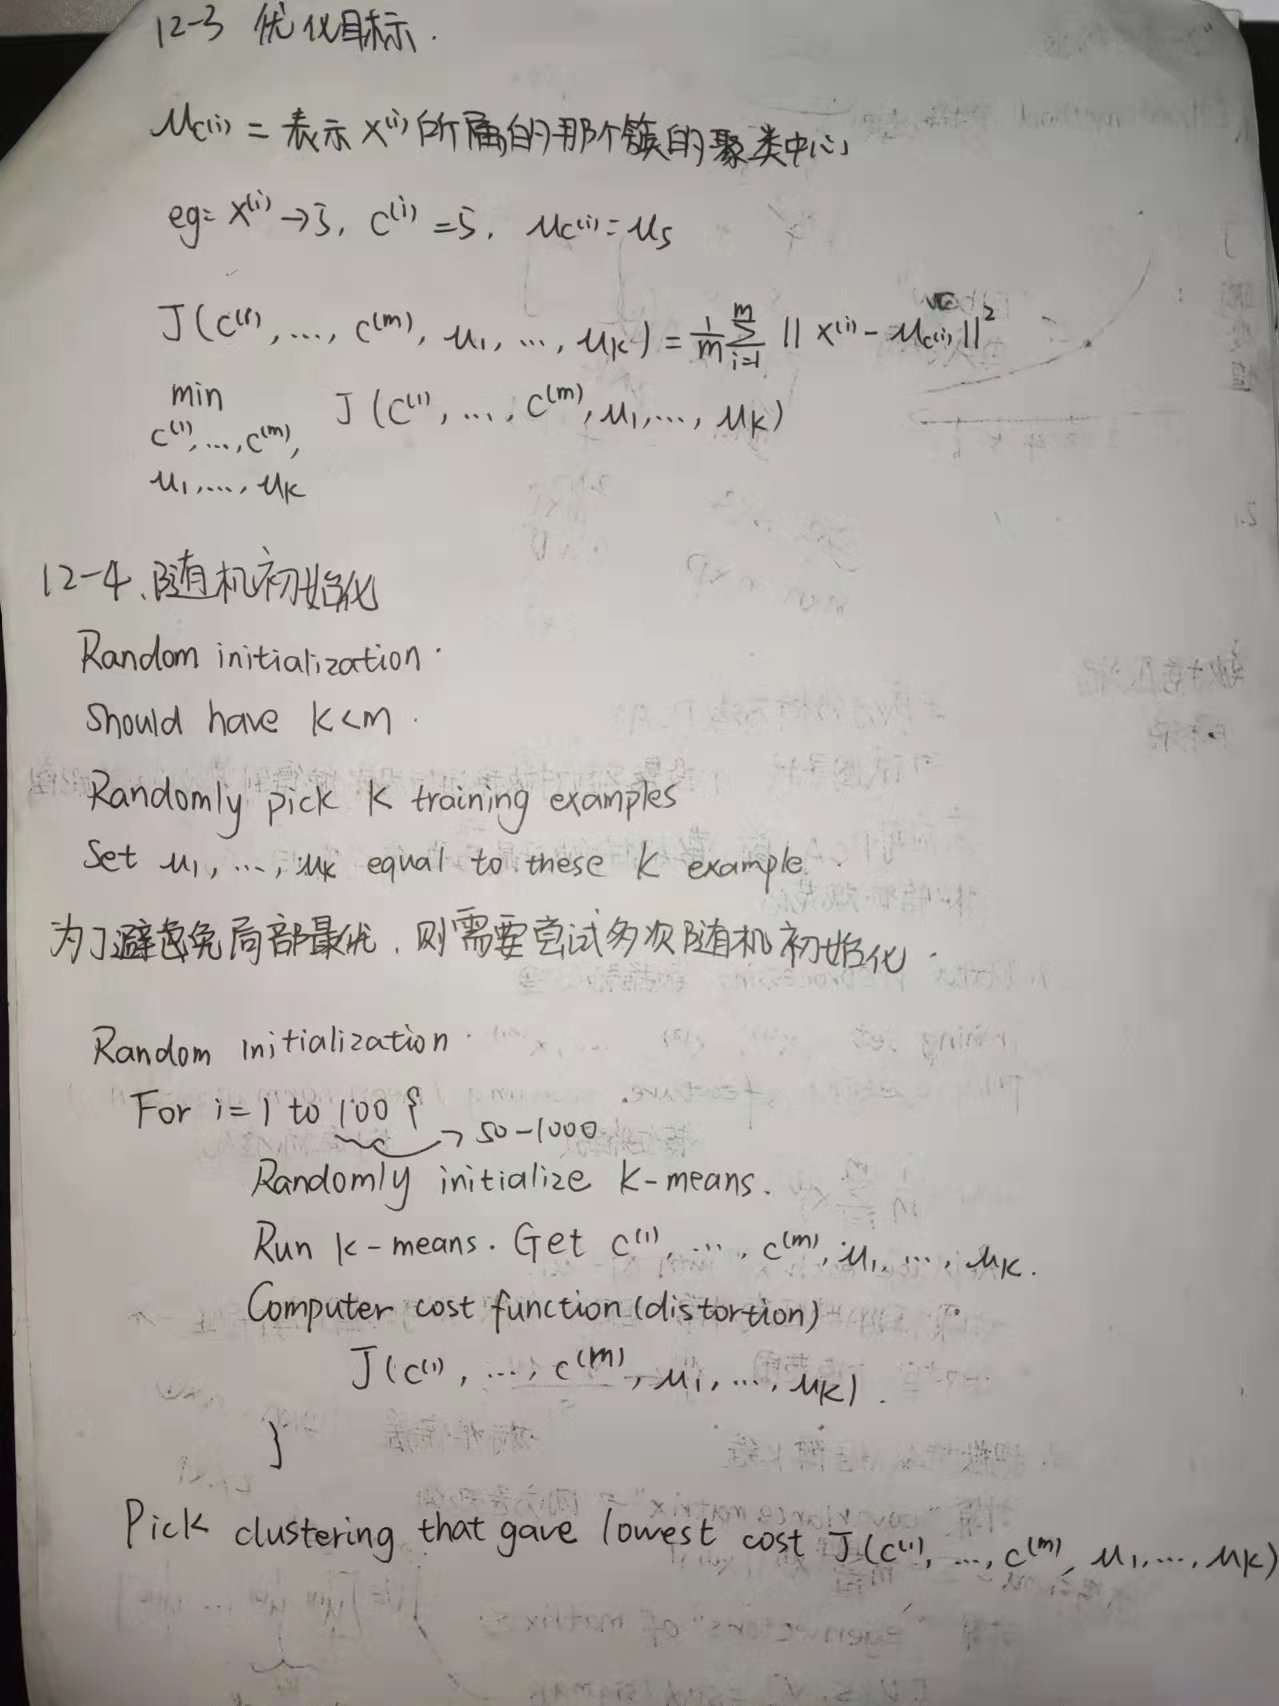 12-3 优化目标.
μc⁽ⁱ⁾ = 表示 x⁽ⁱ⁾ 所属的那个簇的聚类中心
eg: x⁽ⁱ⁾ → 5, c⁽ⁱ⁾ = 5, μc⁽ⁱ⁾ = μ5
J(c⁽¹⁾, ..., c⁽ᵐ⁾, μ1, ..., μK) = 1/m Σ_{i=1}^{m} || x⁽ⁱ⁾ - μc⁽ⁱ⁾ ||²
min J(c⁽¹⁾, ..., c⁽ᵐ⁾, μ1, ..., μK)
c⁽¹⁾, ..., c⁽ᵐ⁾,
μ1, ..., μK
12-4、随机初始化
Random initialization.
Should have K<m.
Randomly pick K training examples
Set μ1, ..., μK equal to these K example.
为了避免局部最优, 则需要尝试多次随机初始化.
Random initialization.
For i = 1 to 100 { → 50-1000
Randomly initialize K-means.
Run K-means. Get c⁽¹⁾, ..., c⁽ᵐ⁾, μ1, ..., μK.
Computer cost function (distortion)
J(c⁽¹⁾, ..., c⁽ᵐ⁾, μ1, ..., μK).
}
Pick clustering that gave lowest cost J(c⁽¹⁾, ..., c⁽ᵐ⁾, μ1, ..., μK)